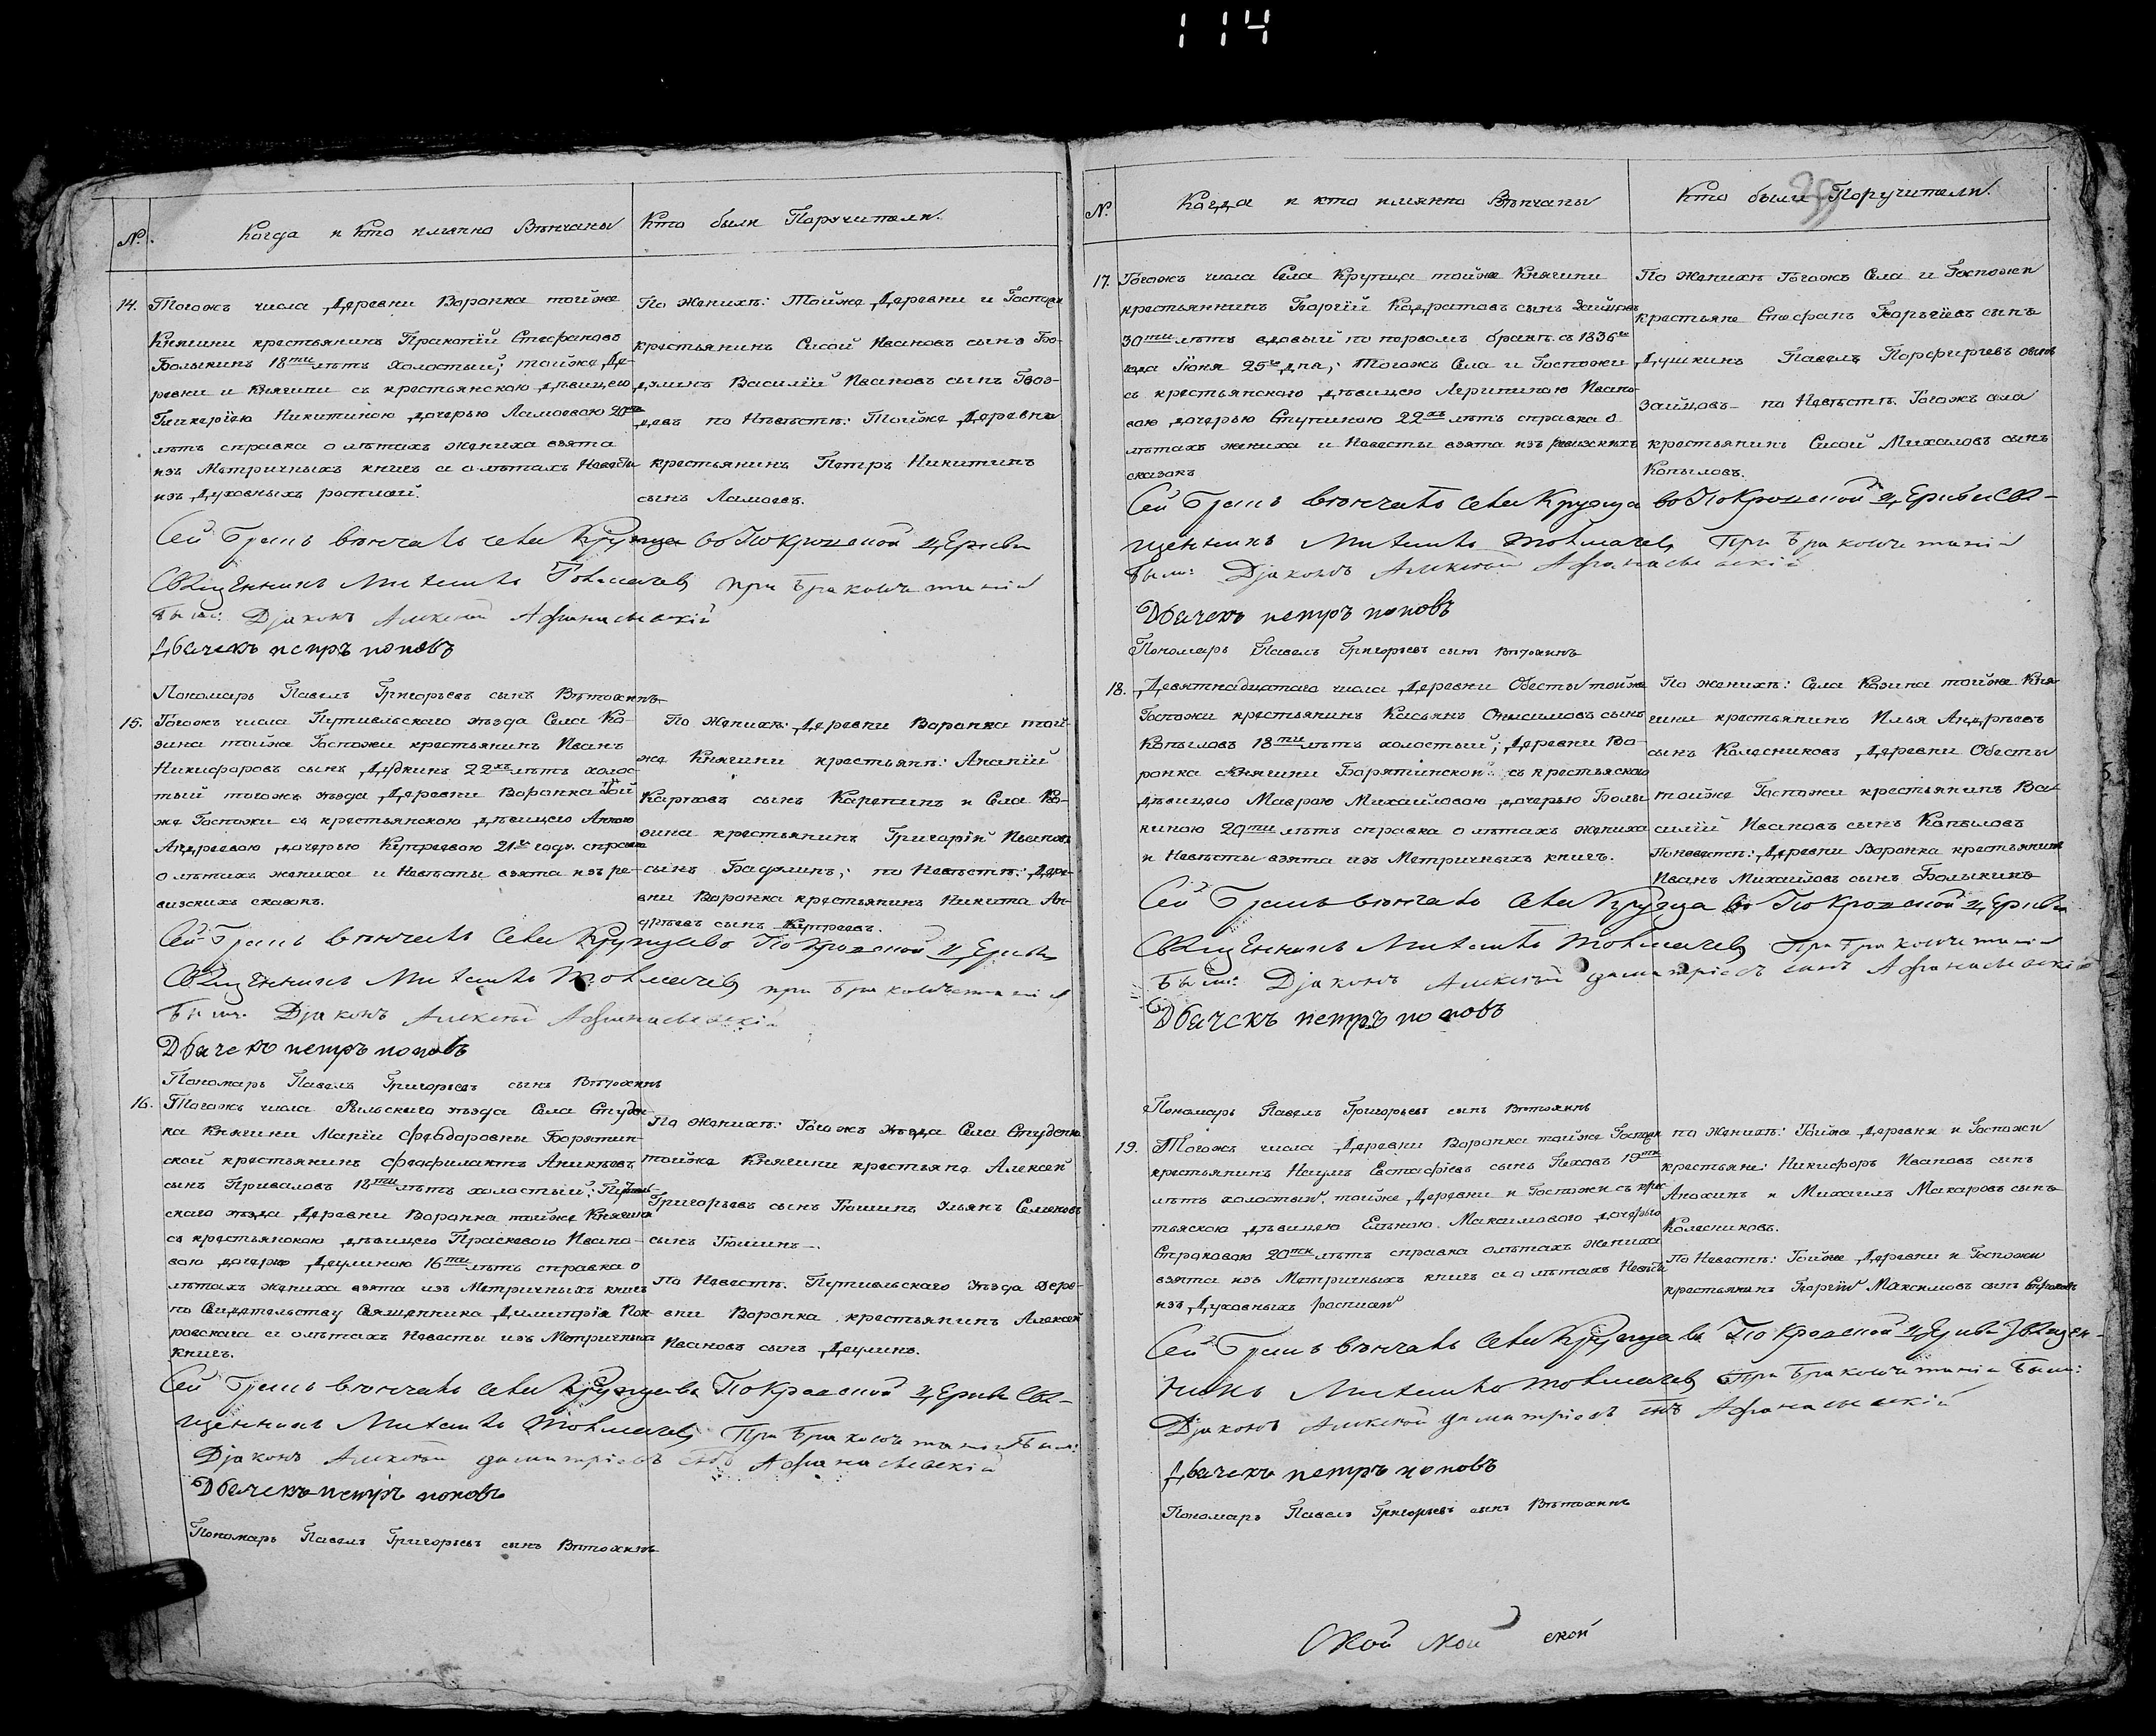 114
№. Когда и кто имянно Вѣнчаны Кто были Поручители.
14. Тогожъ числа Деревни Воронка тойже
Княгини крестьянинъ Пракопій Стефановъ
Болыкинъ 18ти лѣтъ холостый; тойже Де-
ревни и Княгини съ крестьянскою дѣвицею
Гликеріею Никитиною дочерью Ламоевою 20ти
лѣтъ справка о лѣтахъ жениха взята
изъ Метричныхъ книгъ а о лѣтахъ Невѣсты
изъ Духовныхъ росписей.
По Женихѣ: Тойже Деревни и Госпожи
крестьянинъ Сисой Ивановъ сынъ Бо-
дянъ Василій Ивановъ сынъ Гвоз-
девъ по Невѣстѣ: Тойже Деревни
крестьянинъ Петръ Никитинъ
сынъ Ламоевъ.
Сей Бракъ вѣнчалъ села Крупца во Покровской Церкви
Священникъ Толмачевъ при бракосочетаніи
были: Діаконъ Алексѣй Афанасьевскій
Дьячекъ петръ поповъ
Пономарь Павелъ Григорьевъ сынъ Вѣтохинъ
15. Тогожъ числа Путивльскаго уѣзда Села Ко-
зина тойже Госпожи крестьянинъ Иванъ
Никифоровъ сынъ Дудкинъ 22хъ лѣтъ холос-
тый тогожъ уѣзда Деревни Воронка Той
же Госпожи съ крестьянскою дѣвицею Анною
Андреевою дочерью Купреевою 21го году. справка
о лѣтахъ жениха и Невѣсты взята изъ ре-
визскихъ сказокъ.
По Женихѣ: Деревни Воронка той
же Княгини крестьянъ: Ананій
Карповъ сынъ Карепинъ и Села Ко-
зина крестьянинъ Григорій Ивановъ
сынъ Бадянинъ; по Невѣстѣ: Дере-
вни Воронка крестьянинъ Никита Ан-
дреевъ сынъ Купреевъ.
Сей Бракъ вѣнчалъ села Крупца во Покровской Церкви
Священникъ Толмачевъ при бракосочетаніи
были: Діаконъ Алексѣй Афанасьевскій
Дьячекъ петръ поповъ
Пономарь Павелъ Григорьевъ сынъ Вѣтохинъ
16. Тогожъ числа Рыльскаго уѣзда Села Студен-
ка Княгини Маріи Феодоровны Борятин-
ской крестьянинъ Феофилактъ Аникѣевъ
сынъ Приваловъ 18ти лѣтъ холостый; Путивль-
скаго уѣзда Деревни Воронка тойже Княгини
съ крестьянскою дѣвицею Праскевою Ивано-
вою дочерью Деулиною 16ти лѣтъ справка о
лѣтахъ жениха взята изъ Метричныхъ книгъ
по Свидетельству Священника Димитрія Пок-
ровскаго а о лѣтахъ Невесты изъ Метричныхъ
книгъ.
По Женихѣ: Тогожъ уѣзда Села Студенка
тойже Княгини крестьяне Алексей
Григорьевъ сынъ Тюшинъ Ульянъ Семеновъ
сынъ Тюшинъ.
По Невестѣ. Путивльскаго Уѣзда Дере-
вни Воронка крестьянинъ Алексей
Ивановъ сынъ Деулинъ.
Сей Бракъ вѣнчалъ села Крупца во Покровской Церкви Свя-
щенникъ Толмачевъ При бракосочетаніи были:
Діаконъ Алексѣй димитріевъ Афанасьевскій
Дьячекъ петръ поповъ
Пономарь Павелъ Григорьевъ сынъ Вѣтохинъ
№. Когда и кто имянно Вѣнчаны Кто были Поручители.
17. Тогожъ числа Села Крупца тойже Княгини
крестьянинъ Георгій Кодратовъ сынъ Зайцовъ
30ти лѣтъ вдовый по первомъ бракѣ съ 1836го
года Іюня 25го дня; Тогожъ Села и Госпожи
съ крестьянскою дѣвицею Агрипиною Ивано-
вою дочерью Ступиною 22хъ лѣтъ справка о
лѣтахъ жениха и Невесты взята изъ ревизскихъ
сказокъ
По Женихѣ Тогожъ Села и Госпожи
крестьяне Стефанъ Георгіевъ сынъ
Душкинъ Павелъ Порфирьевъ сынъ
Зайцовъ по Невѣстѣ. Тогожъ села
крестьянинъ Сисой Михаловъ сынъ
Копыловъ.
Сей Бракъ вѣнчалъ села Крупца во Покровской Церкви свя-
щенникъ Толмачевъ При бракосочетаніи
были: Діаконъ Алексѣй Афанасьевскій
Дьячекъ петръ поповъ
Пономарь Павелъ Григорьевъ сынъ Вѣтохинъ
18. Девятнадцатаго числа Деревни Обесты тойже
Госпожи крестьянинъ Касьянъ Онисимовъ сынъ
Копыловъ 18ти лѣтъ холостый; Деревни Во-
ронка Княгини Борятинской съ крестьяскою
дѣвицею Маврою Михайловою дочерью Болы-
киною 20ти лѣтъ справка о лѣтахъ жениха
и Невѣсты взята изъ Метричныхъ книгъ.
По женихѣ: Села Козина тойже Кня-
гини крестьянинъ Илья Андрѣевъ
сынъ Колесниковъ Деревни Обесты
тойже Госпожи крестьянинъ Ва-
силій Ивановъ сынъ Копыловъ
По невестѣ: Деревни Воронка крестьянинъ
Иванъ Михайловъ сынъ Болыкинъ
Сей Бракъ вѣнчалъ села Крупца во Покровской Церкви
Священникъ Толмачевъ При бракосочетаніи
были: Діаконъ Алексѣй димитріевъ сынъ Афанасьевскій
Дьячекъ петръ поповъ
Пономарь Павелъ Григорьевъ сынъ Вѣтохинъ
19. Тогожъ числа Деревни Воронка тойже Госпожи
крестьянинъ Наумъ Евстафіевъ сынъ Пеховъ 19ти
лѣтъ холостый, тойже Деревни и Госпожи съ крес-
тьяскою дѣвицею Еленою Максимовою дочерью
Строковою 20ти лѣтъ справка о лѣтахъ Жениха
взята изъ Метричныхъ книгъ а о лѣтахъ Невѣсты
изъ Духовныхъ росписей
по Женихѣ: Тойже Деревни и Госпожи
крестьяне: Никифоръ Ивановъ сынъ
Анохинъ и Михаилъ Макаровъ сынъ
Колесниковъ.
По Невестѣ: Тойже Деревни и Госпожи
крестьянинъ Георгій Максимовъ сынъ Строковъ
Сей Бракъ вѣнчалъ села Крупца во Покровской Церкви Священ-
никъ Толмачевъ При бракосочетаніи были:
Діаконъ Алексѣй димитріевъ Афанасьевскій
Дьячекъ петръ поповъ
Пономарь Павелъ Григорьевъ сынъ Вѣтохинъ
ской